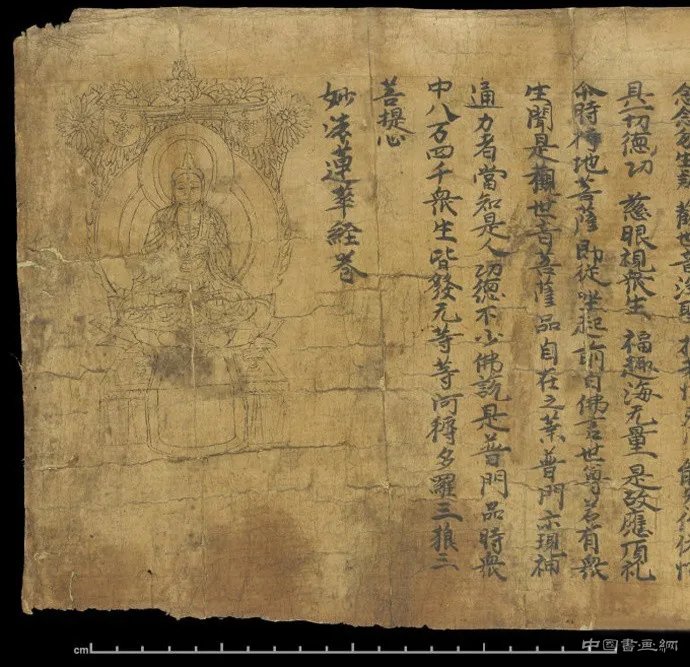 念念勿生疑 觀世音淨
具一切德功 慈眼視衆生 福趣海无量 是故應頂礼
尒時持地菩薩即從坐起前白佛言世尊若有衆
生聞是觀世音菩薩品自在之業普門示現神
通力者當知是人功德不少佛說是普門品時衆
中八万四千衆生皆發无等等阿耨多羅三狼三
菩提心
妙法蓮華經卷
cm
中國書画網